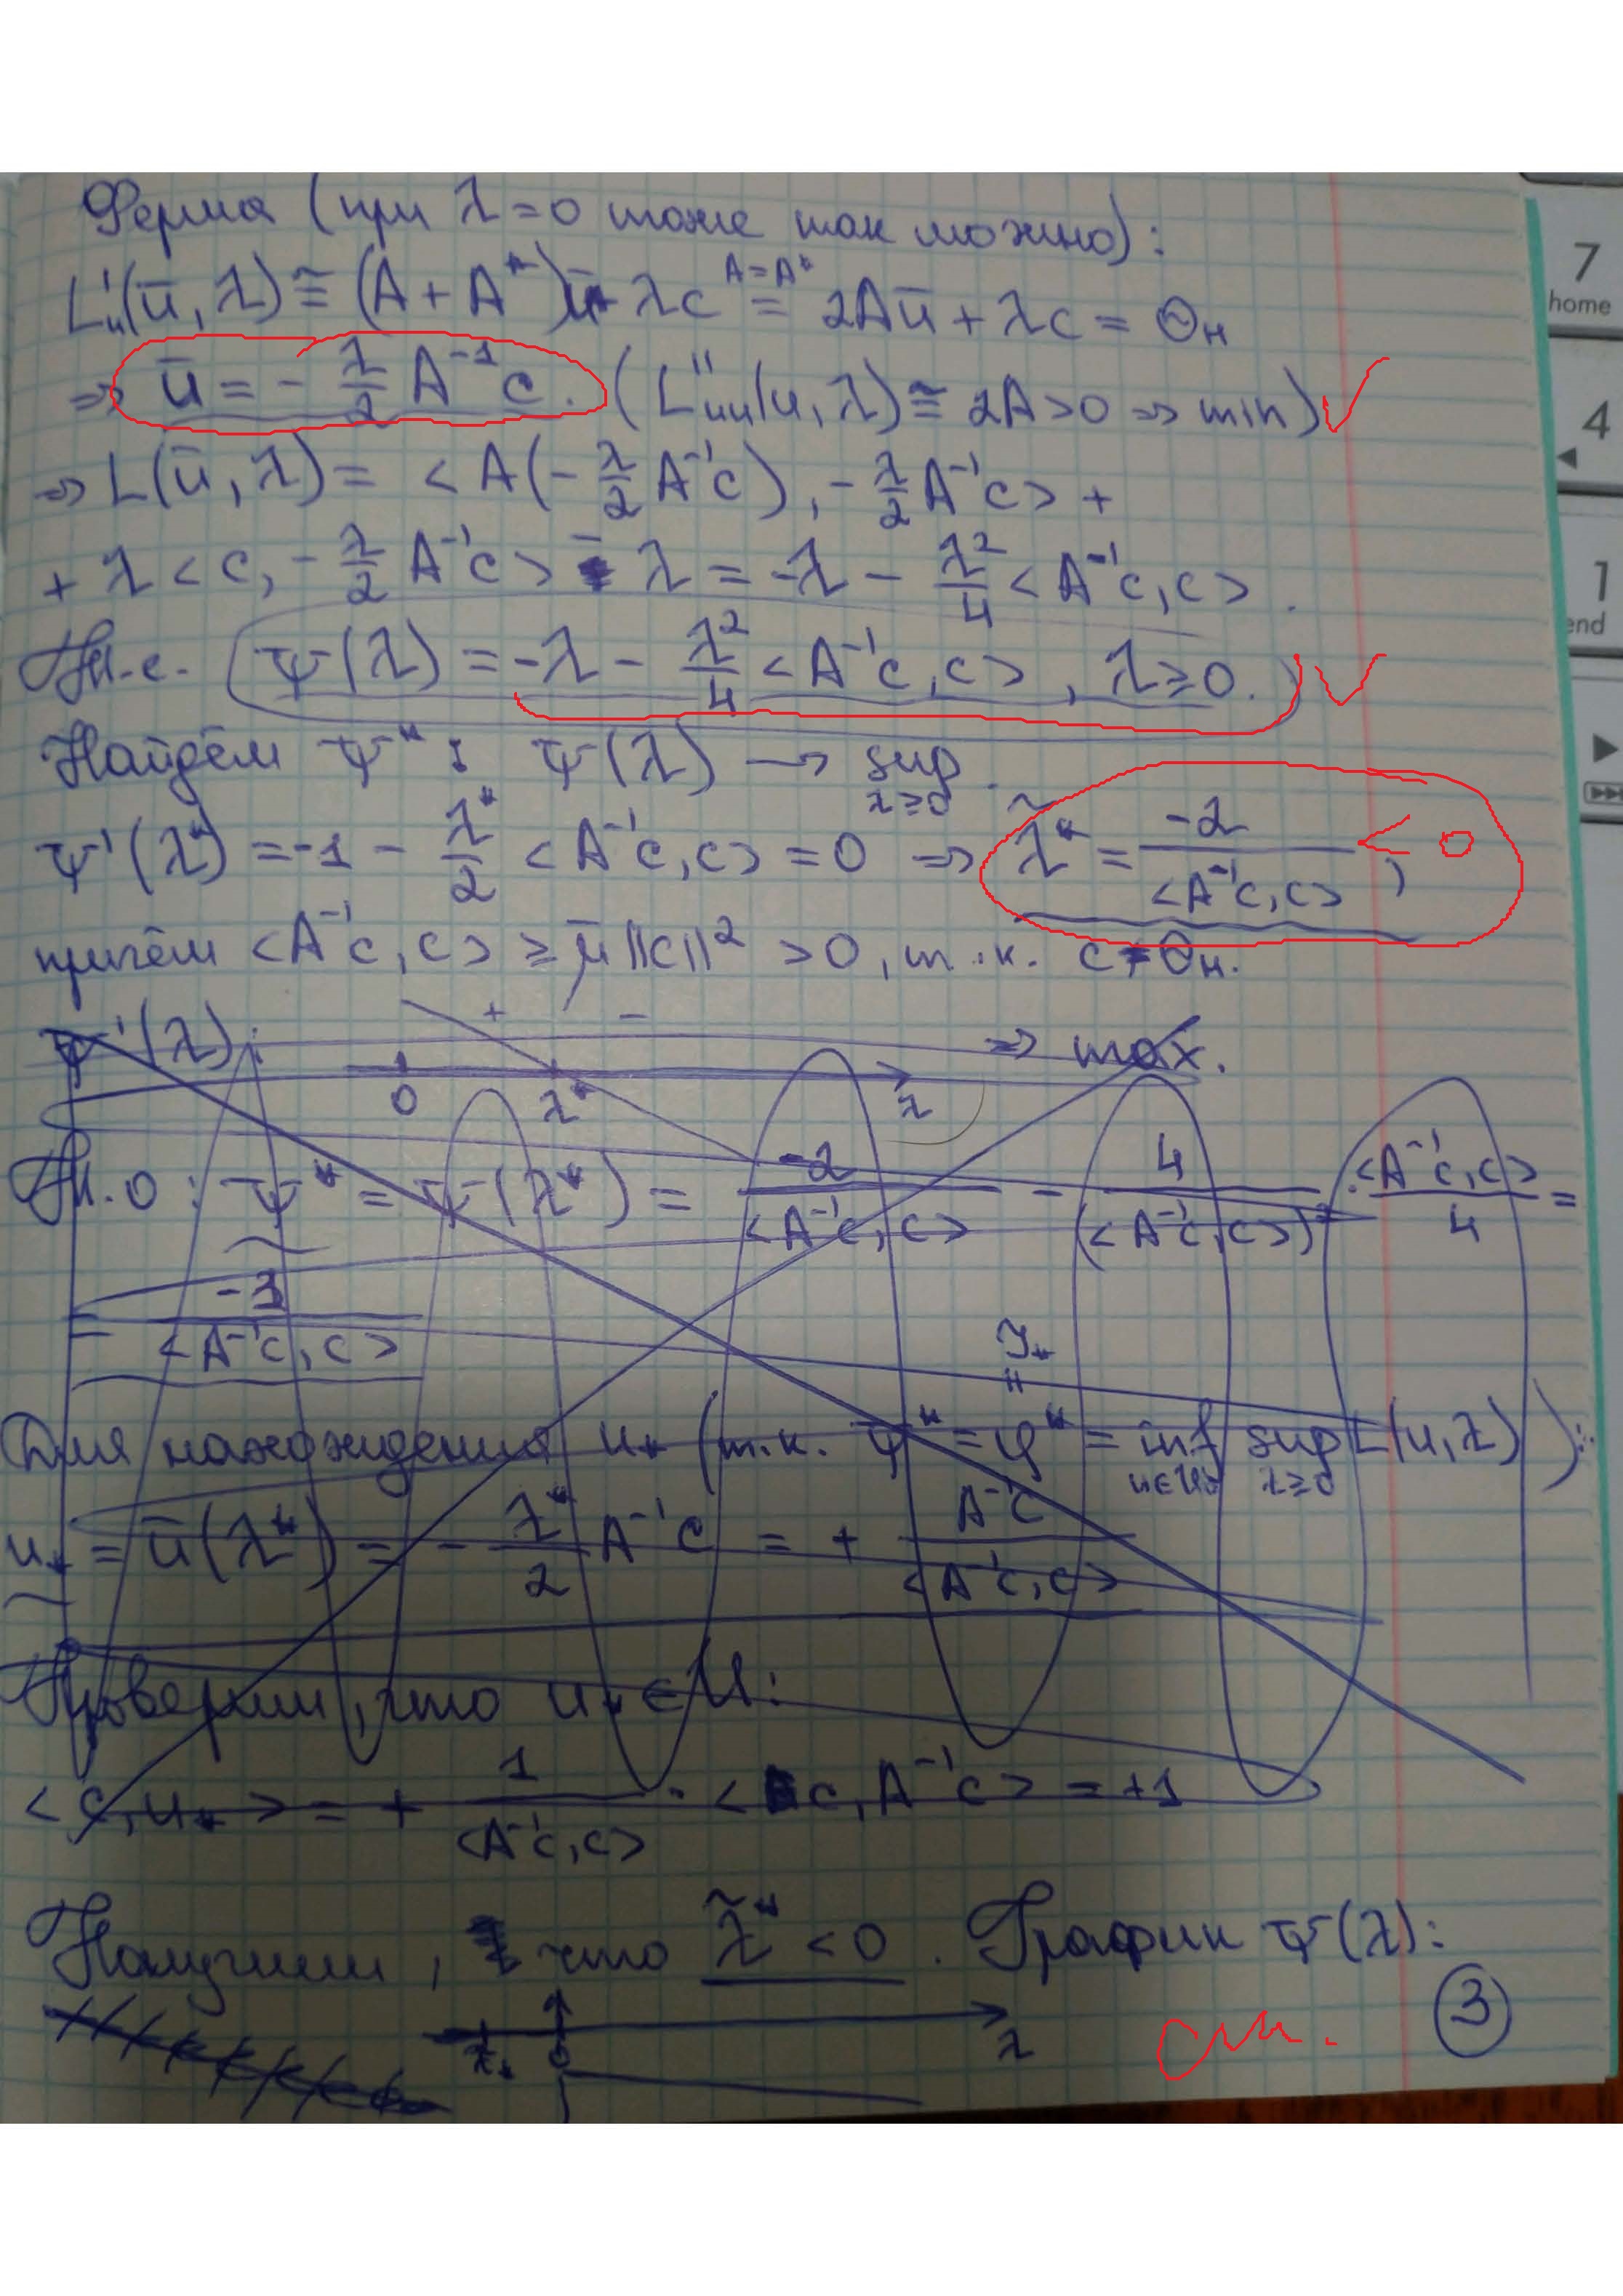 Ферма (при λ=0 тоже так можно):
L'ᵤ(ū, λ) ≅ (A + A*)ū + λc = (A=A*) 2Aū + λc = Θ_H
⇒ ū = - λ/2 A⁻¹c. (L''ᵤᵤ(u, λ) ≅ 2A > 0 ⇒ min) ✓
⇒ L(ū, λ) = <A(-λ/2 A⁻¹c), -λ/2 A⁻¹c> +
+ λ<c, -λ/2 A⁻¹c> - λ = -λ - λ²/4 <A⁻¹c, c>.
Т.е. ψ(λ) = -λ - λ²/4 <A⁻¹c, c>, λ ≥ 0. ✓
Найдём ψ*: ψ(λ) → sup λ≥0.
ψ'(λ̃*) = -1 - λ*/2 <A⁻¹c, c> = 0 ⇒ λ̃* = -2/<A⁻¹c, c>, < 0
причём <A⁻¹c, c> ≥ μ̄||c||² > 0, т.к. c ≠ Θ_H.
ψ'(λ): + - 0 λ* λ ⇒ max.
Т.о: ψ* = ψ(λ*) = -2/<A⁻¹c, c> - 4/(<A⁻¹c, c>)² · <A⁻¹c, c>/4 =
= -3/<A⁻¹c, c>
Для нахождения u* (т.к. ψ* = φ* = inf u∈U₀ sup λ≥0 L(u, λ)): J* =
u* = ū(λ*) = - λ*/2 A⁻¹c = + A⁻¹c/<A⁻¹c, c>
Проверим, что u* ∈ U:
<c, u*> = + 1/<A⁻¹c, c> · <c, A⁻¹c> = +1
Получили, что λ̃* < 0. График ψ(λ):
λ* 0 λ
см.
3
7
home
4
1
end